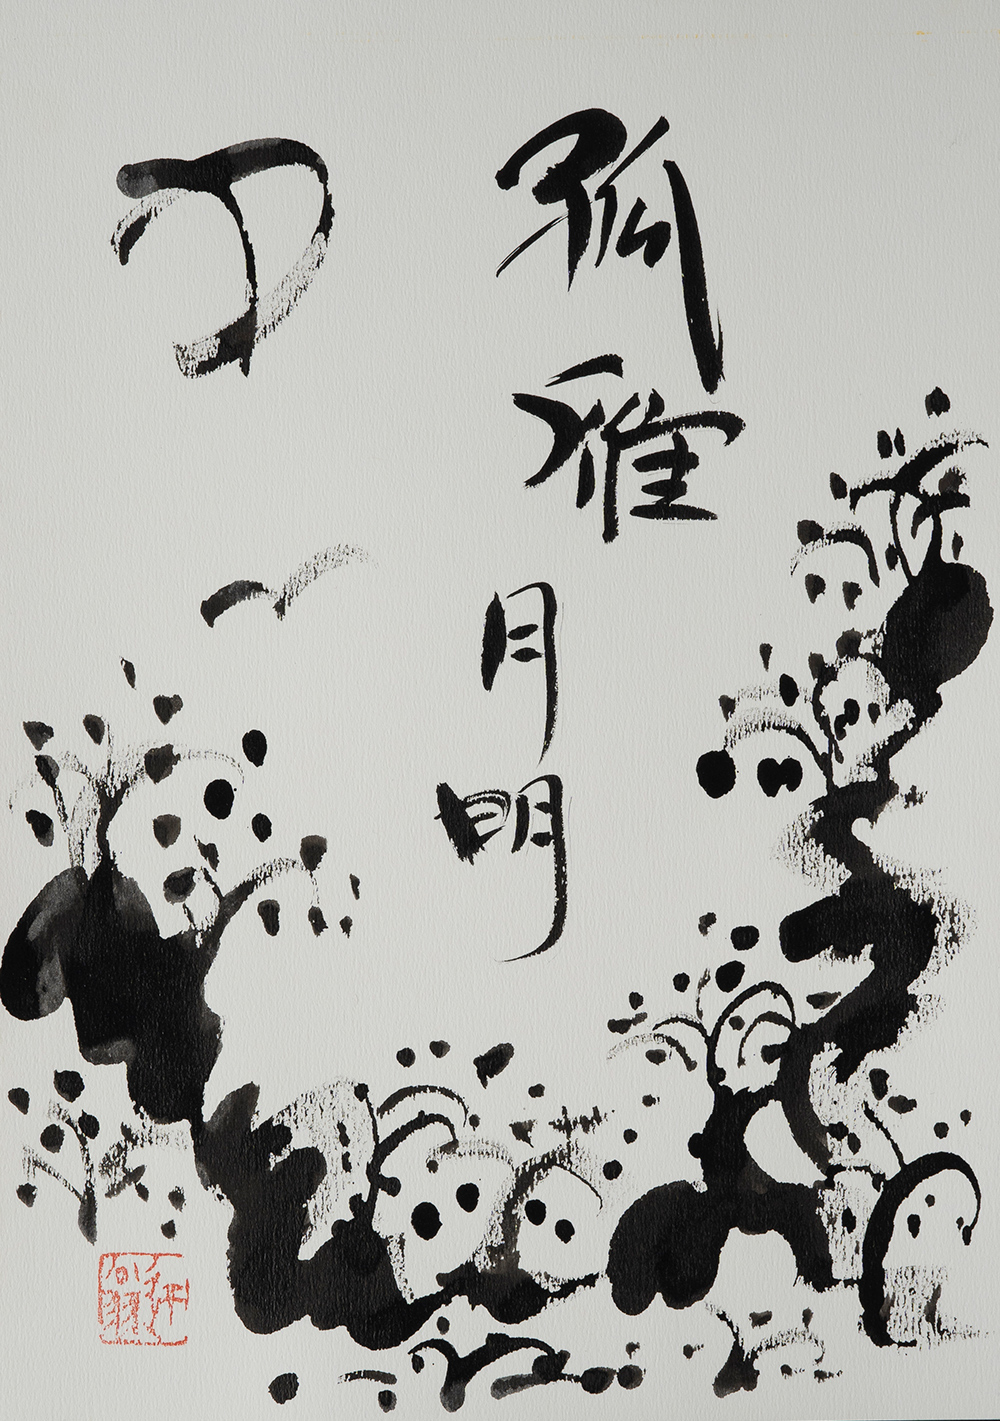 孤雁月明